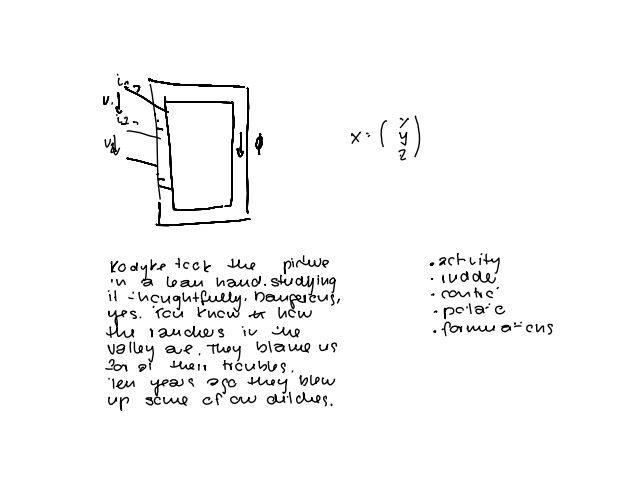 i1
v1
i2
v2
ϕ
x = ( x
y
z )
Rodyke took the picture
in a lean hand. studying
it thoughtfully. Dangerous,
yes. You know how
the ranchers in the
valley are. They blame us
for all their troubles.
Ten years ago they blew
up some of our ditches.
• activity
• rudder
• contic
• polaic
• formuations